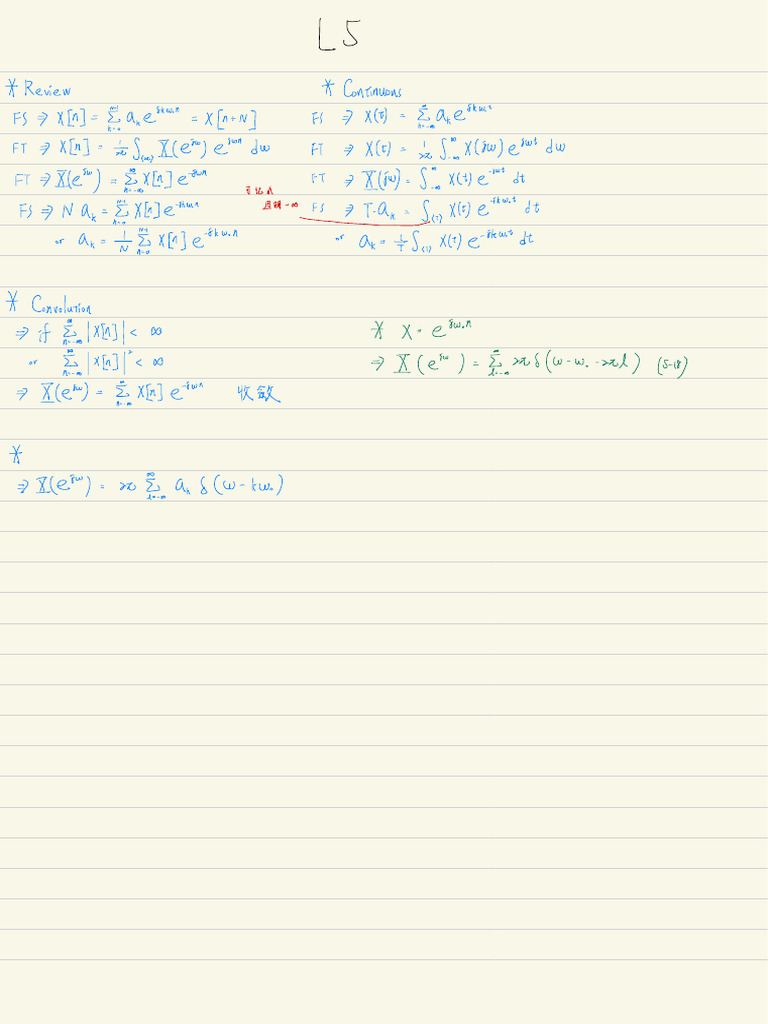 L5
* Review
FS ⇒ X[n] = Σ_{k=0}^{N-1} a_k e^{jkω₀n} = X[n+N]
FT ⇒ X[n] = 1/2π ∫_{⟨2π⟩} X(e^{jω}) e^{jωn} dω
FT ⇒ X(e^{jω}) = Σ_{n=-∞}^{∞} X[n] e^{-jωn}
FS ⇒ N a_k = Σ_{n=0}^{N-1} X[n] e^{-jkω₀n}
or a_k = 1/N Σ_{n=0}^{N-1} X[n] e^{-jkω₀n}
* Continuous
FS ⇒ X(t) = Σ_{k=-∞}^{∞} a_k e^{jkω₀t}
FT ⇒ X(t) = 1/2π ∫_{-∞}^{∞} X(jω) e^{jωt} dω
FT ⇒ X(jω) = ∫_{-∞}^{∞} X(t) e^{-jωt} dt
FS ⇒ T·a_k = ∫_{⟨T⟩} X(t) e^{-jkω₀t} dt
or a_k = 1/T ∫_{⟨T⟩} X(t) e^{-jkω₀t} dt
* Convolution
⇒ if Σ_{n=-∞}^{∞} |X[n]| < ∞
or Σ_{n=-∞}^{∞} |X[n]|² < ∞
⇒ X(e^{jω}) = Σ_{n=-∞}^{∞} X[n] e^{-jωn} 收斂
* X = e^{jω₀n}
⇒ X(e^{jω}) = Σ_{l=-∞}^{∞} 2π δ(ω - ω₀ - 2πl) (5-18)
*
⇒ X(e^{jω}) = 2π Σ_{k=-∞}^{∞} a_k δ(ω - kω₀)